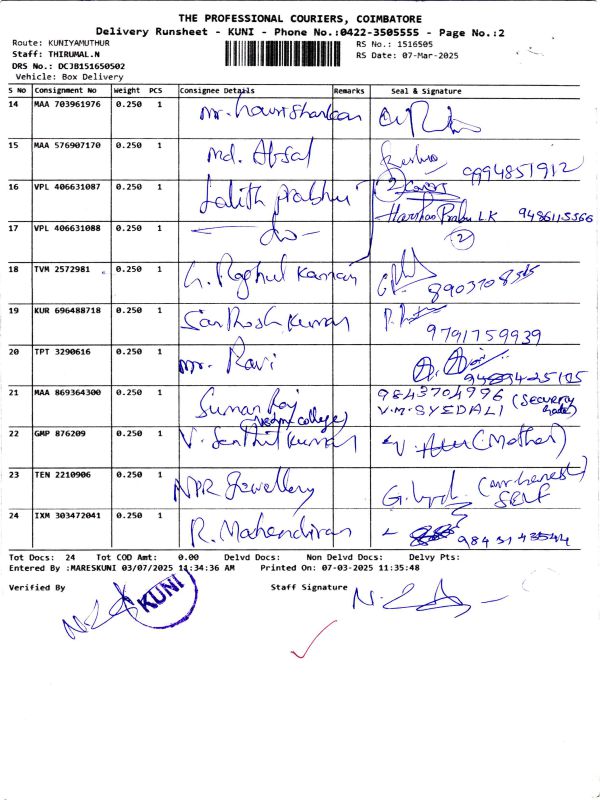 THE PROFESSIONAL COURIERS, COIMBATORE
Delivery Runsheet - KUNI - Phone No.:0422-3505555 - Page No.:2
Route: KUNIYAMUTHUR
RS No.: 1516505
Staff: THIRUMAL.N
RS Date: 07-Mar-2025
DRS No.: DCJB151650502
Vehicle: Box Delivery
S No Consignment No Weight PCS Consignee Details Remarks Seal & Signature
14 MAA 703961976 0.250 1 Mr.
15 MAA 576907170 0.250 1 Md. Absal 9994851912
16 VPL 406631087 0.250 1 Lalith Prabhu 2 Covers
Harshaa Prabu LK 9486115566
17 VPL 406631088 0.250 1 - do - 2
18 TVM 2572981 0.250 1 G. Raghul Kannan
19 KUR 696488718 0.250 1 Santhosh Kumar 9791759939
20 TPT 3290616 0.250 1 Mr. Ravi
21 MAA 869364300 0.250 1 Suman Raj 9843704996 (Security
college) V.M. SYEDALI
22 GMP 876209 0.250 1 V. Senthil Kumar V. (Mother)
23 TEN 2210906 0.250 1 NPR Jewellery G. SELF
24 IXM 303472041 0.250 1 R. Mahendiran
Tot Docs: 24 Tot COD Amt: 0.00 Delvd Docs: Non Delvd Docs: Delvy Pts:
Entered By :MARESKUNI 03/07/2025 11:34:36 AM Printed On: 07-03-2025 11:35:48
Verified By Staff Signature
KUNI